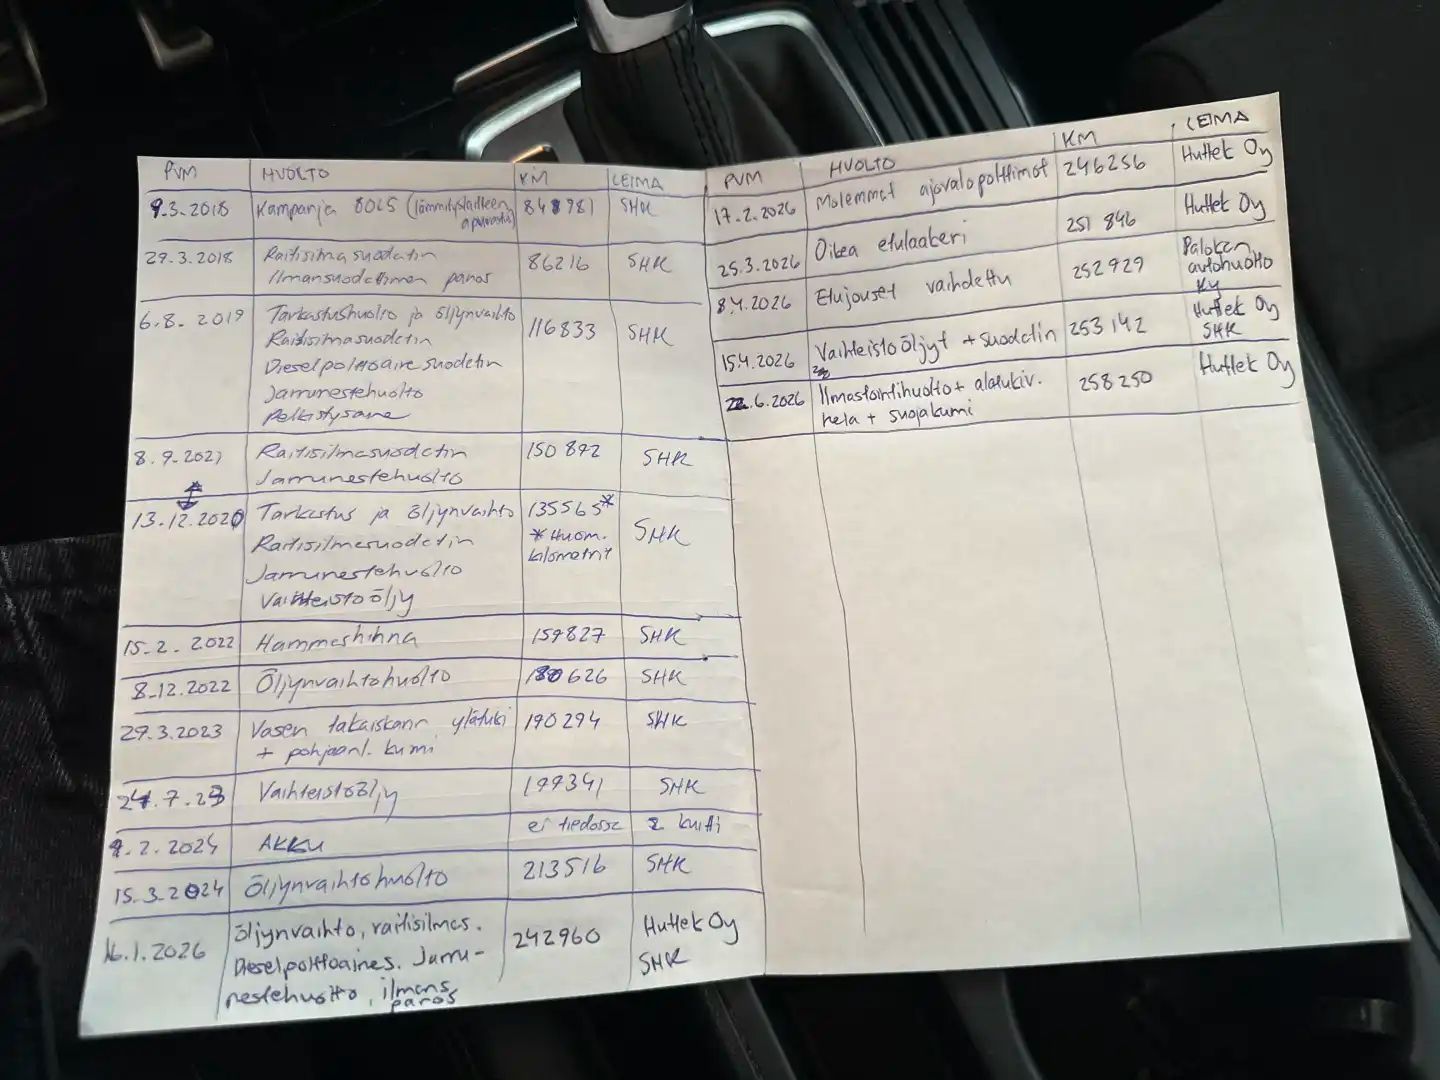 PVM HUOLTO KM LEIMA
9.3.2018 Kampanja 80L5 (lämmityslaitteen 848981 SHK
apuvastus)
29.3.2018 Raitisilmasuodatin 86216 SHK
Ilmansuodattimen panos
6.8. 2019 Tarkastushuolto ja öljynvaihto 116833 SHK
Raitisilmasuodatin
Dieselpolttoaine suodatin
Jarrunestehuolto
8.9.2021 Raitisilmasuodatin 150 892 SHK
Jarrunestehuolto
13.12.2020 Tarkastus ja öljynvaihto 135565* SHK
Raitisilmasuodatin *Huom.
Jarrunestehuolto kilometrit
Vaihteistoöljy
15.2. 2022 Hammashihna 159827 SHK
8.12.2022 Öljynvaihtohuolto 180626 SHK
29.3.2023 Vasen takaiskann. ylätuki 190294 SHK
+ pohjaanl. kumi
24.7.23 Vaihteistoöljy 199341 SHK
9.2.2024 AKKU ei tiedossa kuitti
15.3.2024 Öljynvaihtohuolto 213516 SHK
16.1.2026 Öljynvaihto, raitisilmas. 242960 Huttek Oy
Dieselpolttoaines. Jarru- SHK
nestehuolto, ilmans.
panos
PVM HUOLTO KM LEIMA
17.2.2026 Molemmat ajovalopolttimot 246256 Huttek Oy
25.3.2026 Oikea etulaakeri 251 846 Huttek Oy
8.4.2026 Etujouset vaihdettu 252929 Palokan
autohuolto
Ky
15.4.2026 Vaihteistoöljyt + suodatin 253142 Huttek Oy
SHK
22.6.2026 Ilmastointihuolto + alatukiv. 258250 Huttek Oy
hela + suojakumi